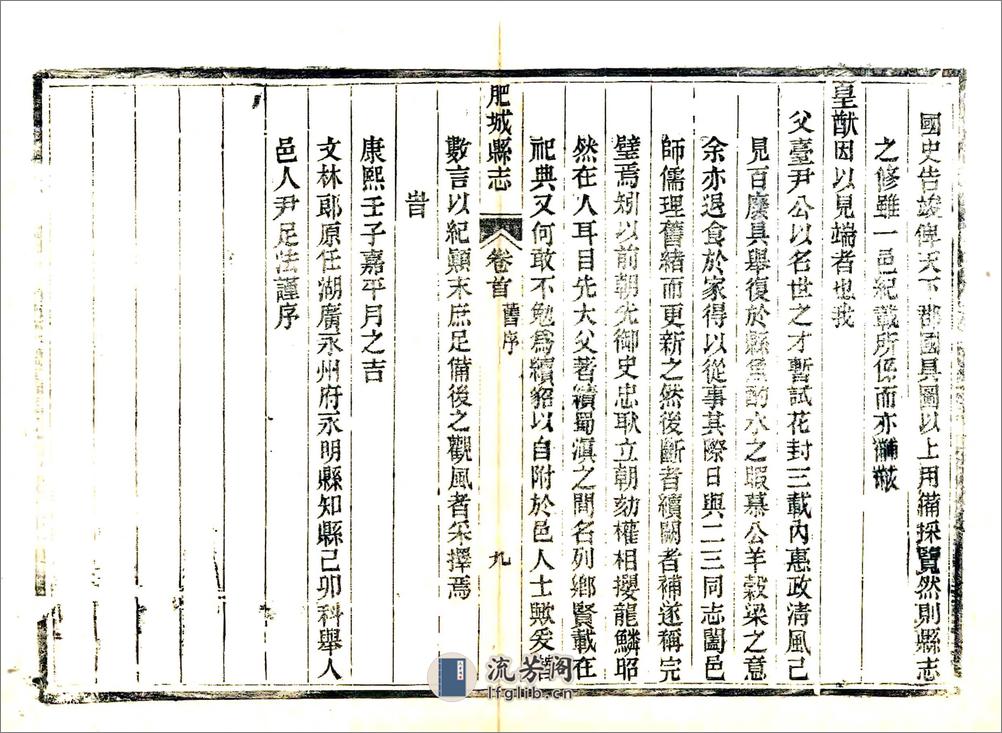 國史告竣俾天下郡國具圖以上用備採覽然則縣志
之修雖一邑紀載所係而亦黼黻
皇猷因以見端者也我
父臺尹公以名世之才暫試花封三載內惠政清風已
見百廢具舉復於縣魚酌水之暇慕公羊穀梁之意
余亦退食於家得以從事其際日與二三同志闔邑
師儒理舊緒而更新之然後斷者續闕者補遂稱完
璧焉矧以前朝先御史忠耿立朝劾權相攖龍鱗昭
然在人耳目先大父著績蜀滇之間名列鄉賢載在
祀典又何敢不勉為續貂以自附於邑人士歟爰
肥城縣志
卷首
舊序
九
數言以紀顛末庶足備後之觀風者采擇焉
旹
康熙壬子嘉平月之吉
文林郎原任湖廣永州府永明縣知縣己卯科舉人
邑人尹足法謹序
流芳阁
lfglib.cn